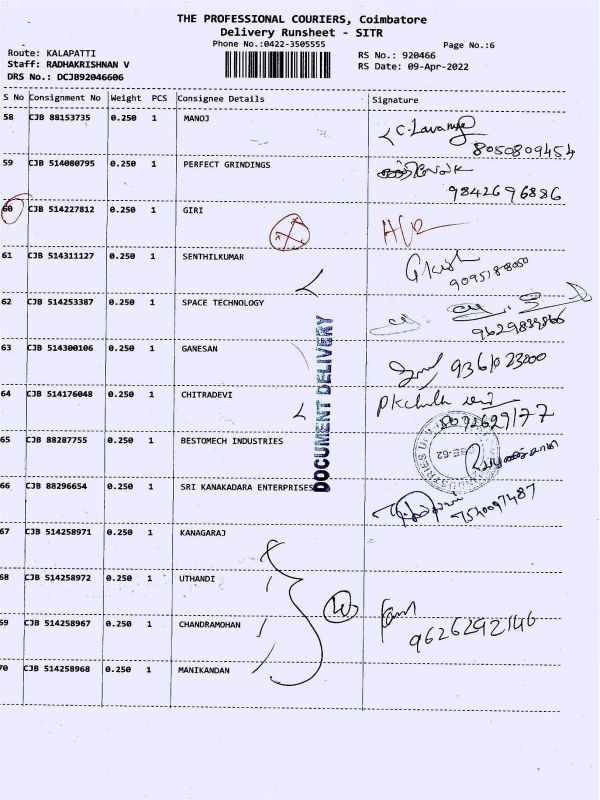 THE PROFESSIONAL COURIERS, Coimbatore
Delivery Runsheet - SITR
Phone No.:0422-3505555
Page No.:6
Route: KALAPATTI
RS No.: 920466
Staff: RADHAKRISHNAN V
RS Date: 09-Apr-2022
DRS No.: DCJB92046606
S No Consignment No Weight PCS Consignee Details Signature
58 CJB 88153735 0.250 1 MANOJ C. Lavanya
8050809454
59 CJB 514080795 0.250 1 PERFECT GRINDINGS
9842696886
60 CJB 514227812 0.250 1 GIRI
61 CJB 514311127 0.250 1 SENTHILKUMAR
9095188050
62 CJB 514253387 0.250 1 SPACE TECHNOLOGY
63 CJB 514300106 0.250 1 GANESAN 9361023000
64 CJB 514176048 0.250 1 CHITRADEVI
DOCUMENT DELIVERY
65 CJB 88287755 0.250 1 BESTOMECH INDUSTRIES
66 CJB 88296654 0.250 1 SRI KANAKADARA ENTERPRISES
67 CJB 514258971 0.250 1 KANAGARAJ
68 CJB 514258972 0.250 1 UTHANDI
69 CJB 514258967 0.250 1 CHANDRAMOHAN
9626292146
70 CJB 514258968 0.250 1 MANIKANDAN